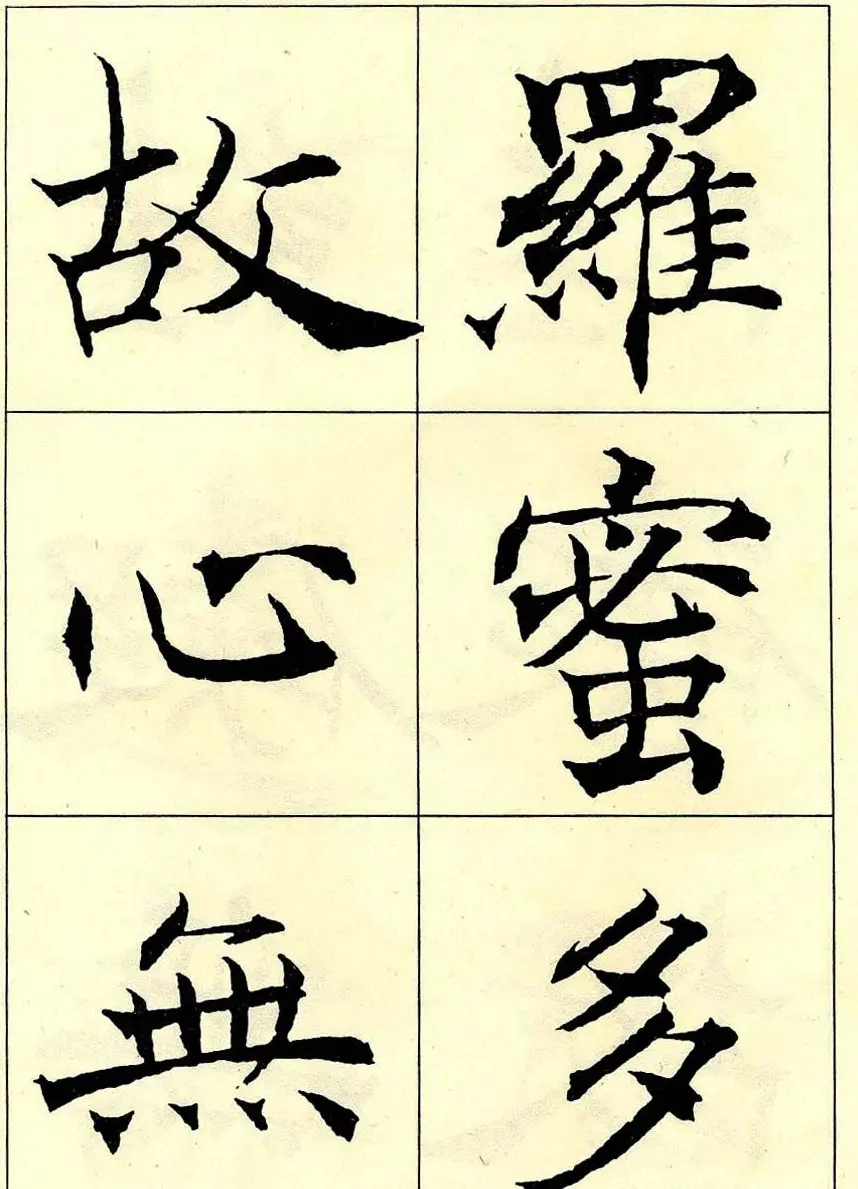 羅蜜多
故心無